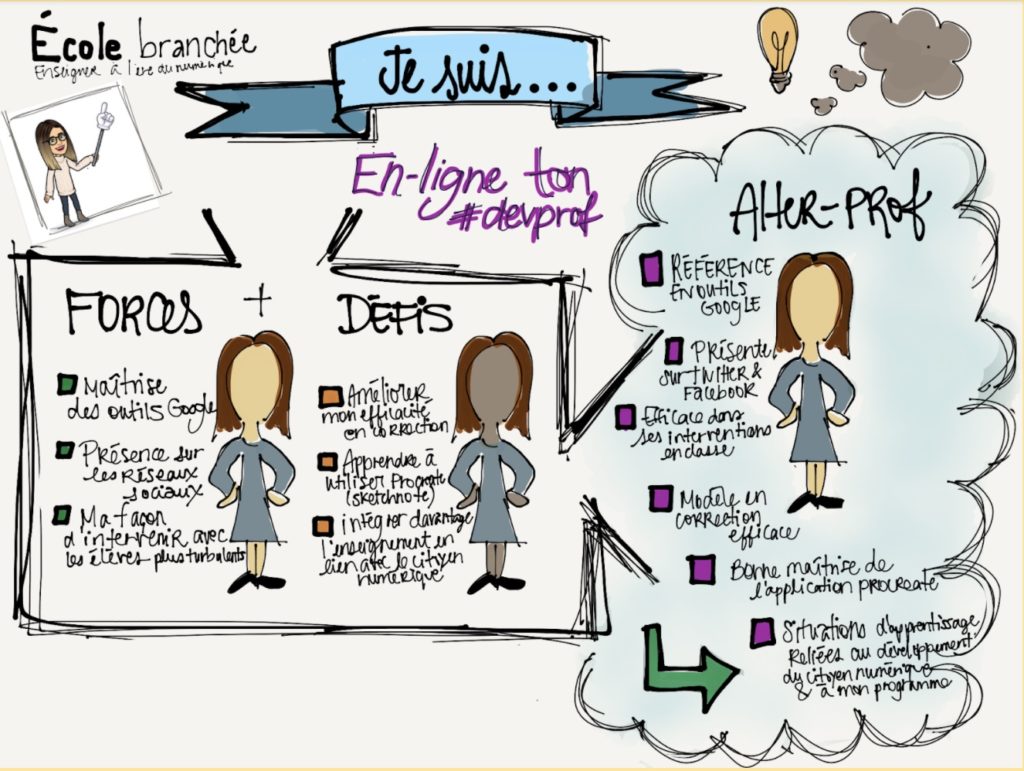 École branchée
Enseigner à l'ère du numérique
Je suis...
En-ligne ton
#devprof
FORCES + DÉFIS
Maîtrise
des outils Google
Présence sur
les réseaux
sociaux
Ma façon
d'intervenir avec
les élèves plus turbulents
Améliorer
mon efficacité
en correction
Apprendre à
utiliser Procreate
(sketchnote)
intégrer davantage
l'enseignement en
lien avec le citoyen
numérique
Alter-Prof
RÉFÉRENCE
EN OUTILS
GOOGLE
Présente
sur Twitter &
Facebook
Efficace dans
ses interventions
en classe
Modèle en
correction
efficace
Bonne maîtrise de
l'application procreate
Situations d'apprentissage
reliées au développement
du citoyen numérique
& à mon programme